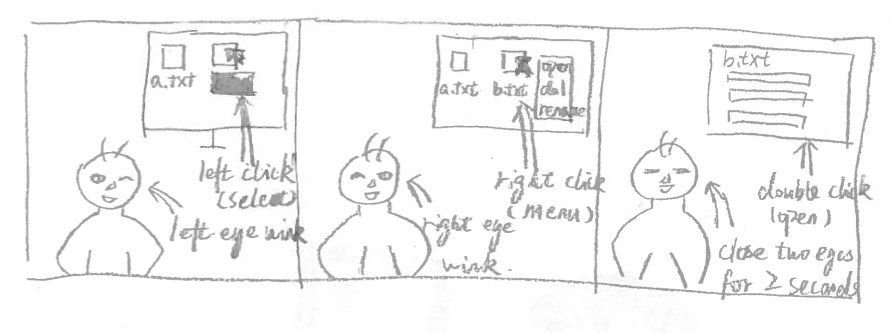 a.txt
left click
(select)
left eye wink
a.txt b.txt
open
del
rename
right click
(MENU)
right eye
wink.
b.txt
double click
(open)
close two eyes
for 2 seconds